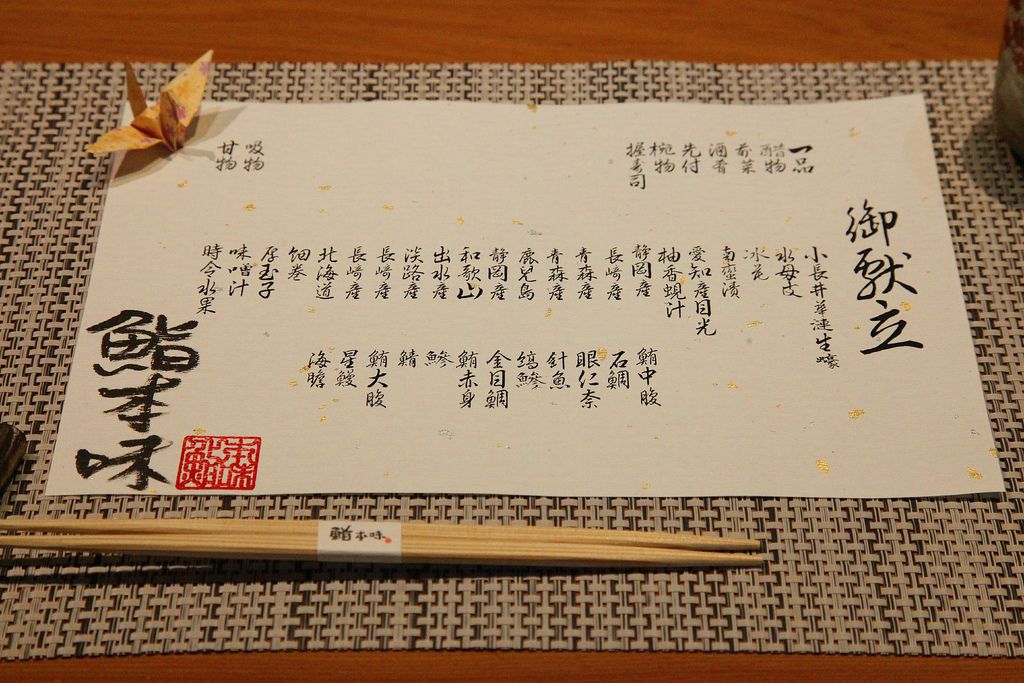 御献立
一品
醋物
前菜
酒肴
先付
椀物
握寿司
吸物
甘物
小長井華漣生蠔
水母皮
氷花
南蛮漬
愛知産目光
柚香蜆汁
静岡産 鮪中腹
長崎産 石鯛
青森産 眼仁奈
青森産 針魚
鹿児島 縞鰺
静岡産 金目鯛
和歌山 鮪赤身
出水産 鰺
淡路産 鯖
長崎産 鮪大腹
長崎産 星鰻
北海道 海膽
細巻
厚玉子
味噌汁
時令水果
鮨本味
鮨本味